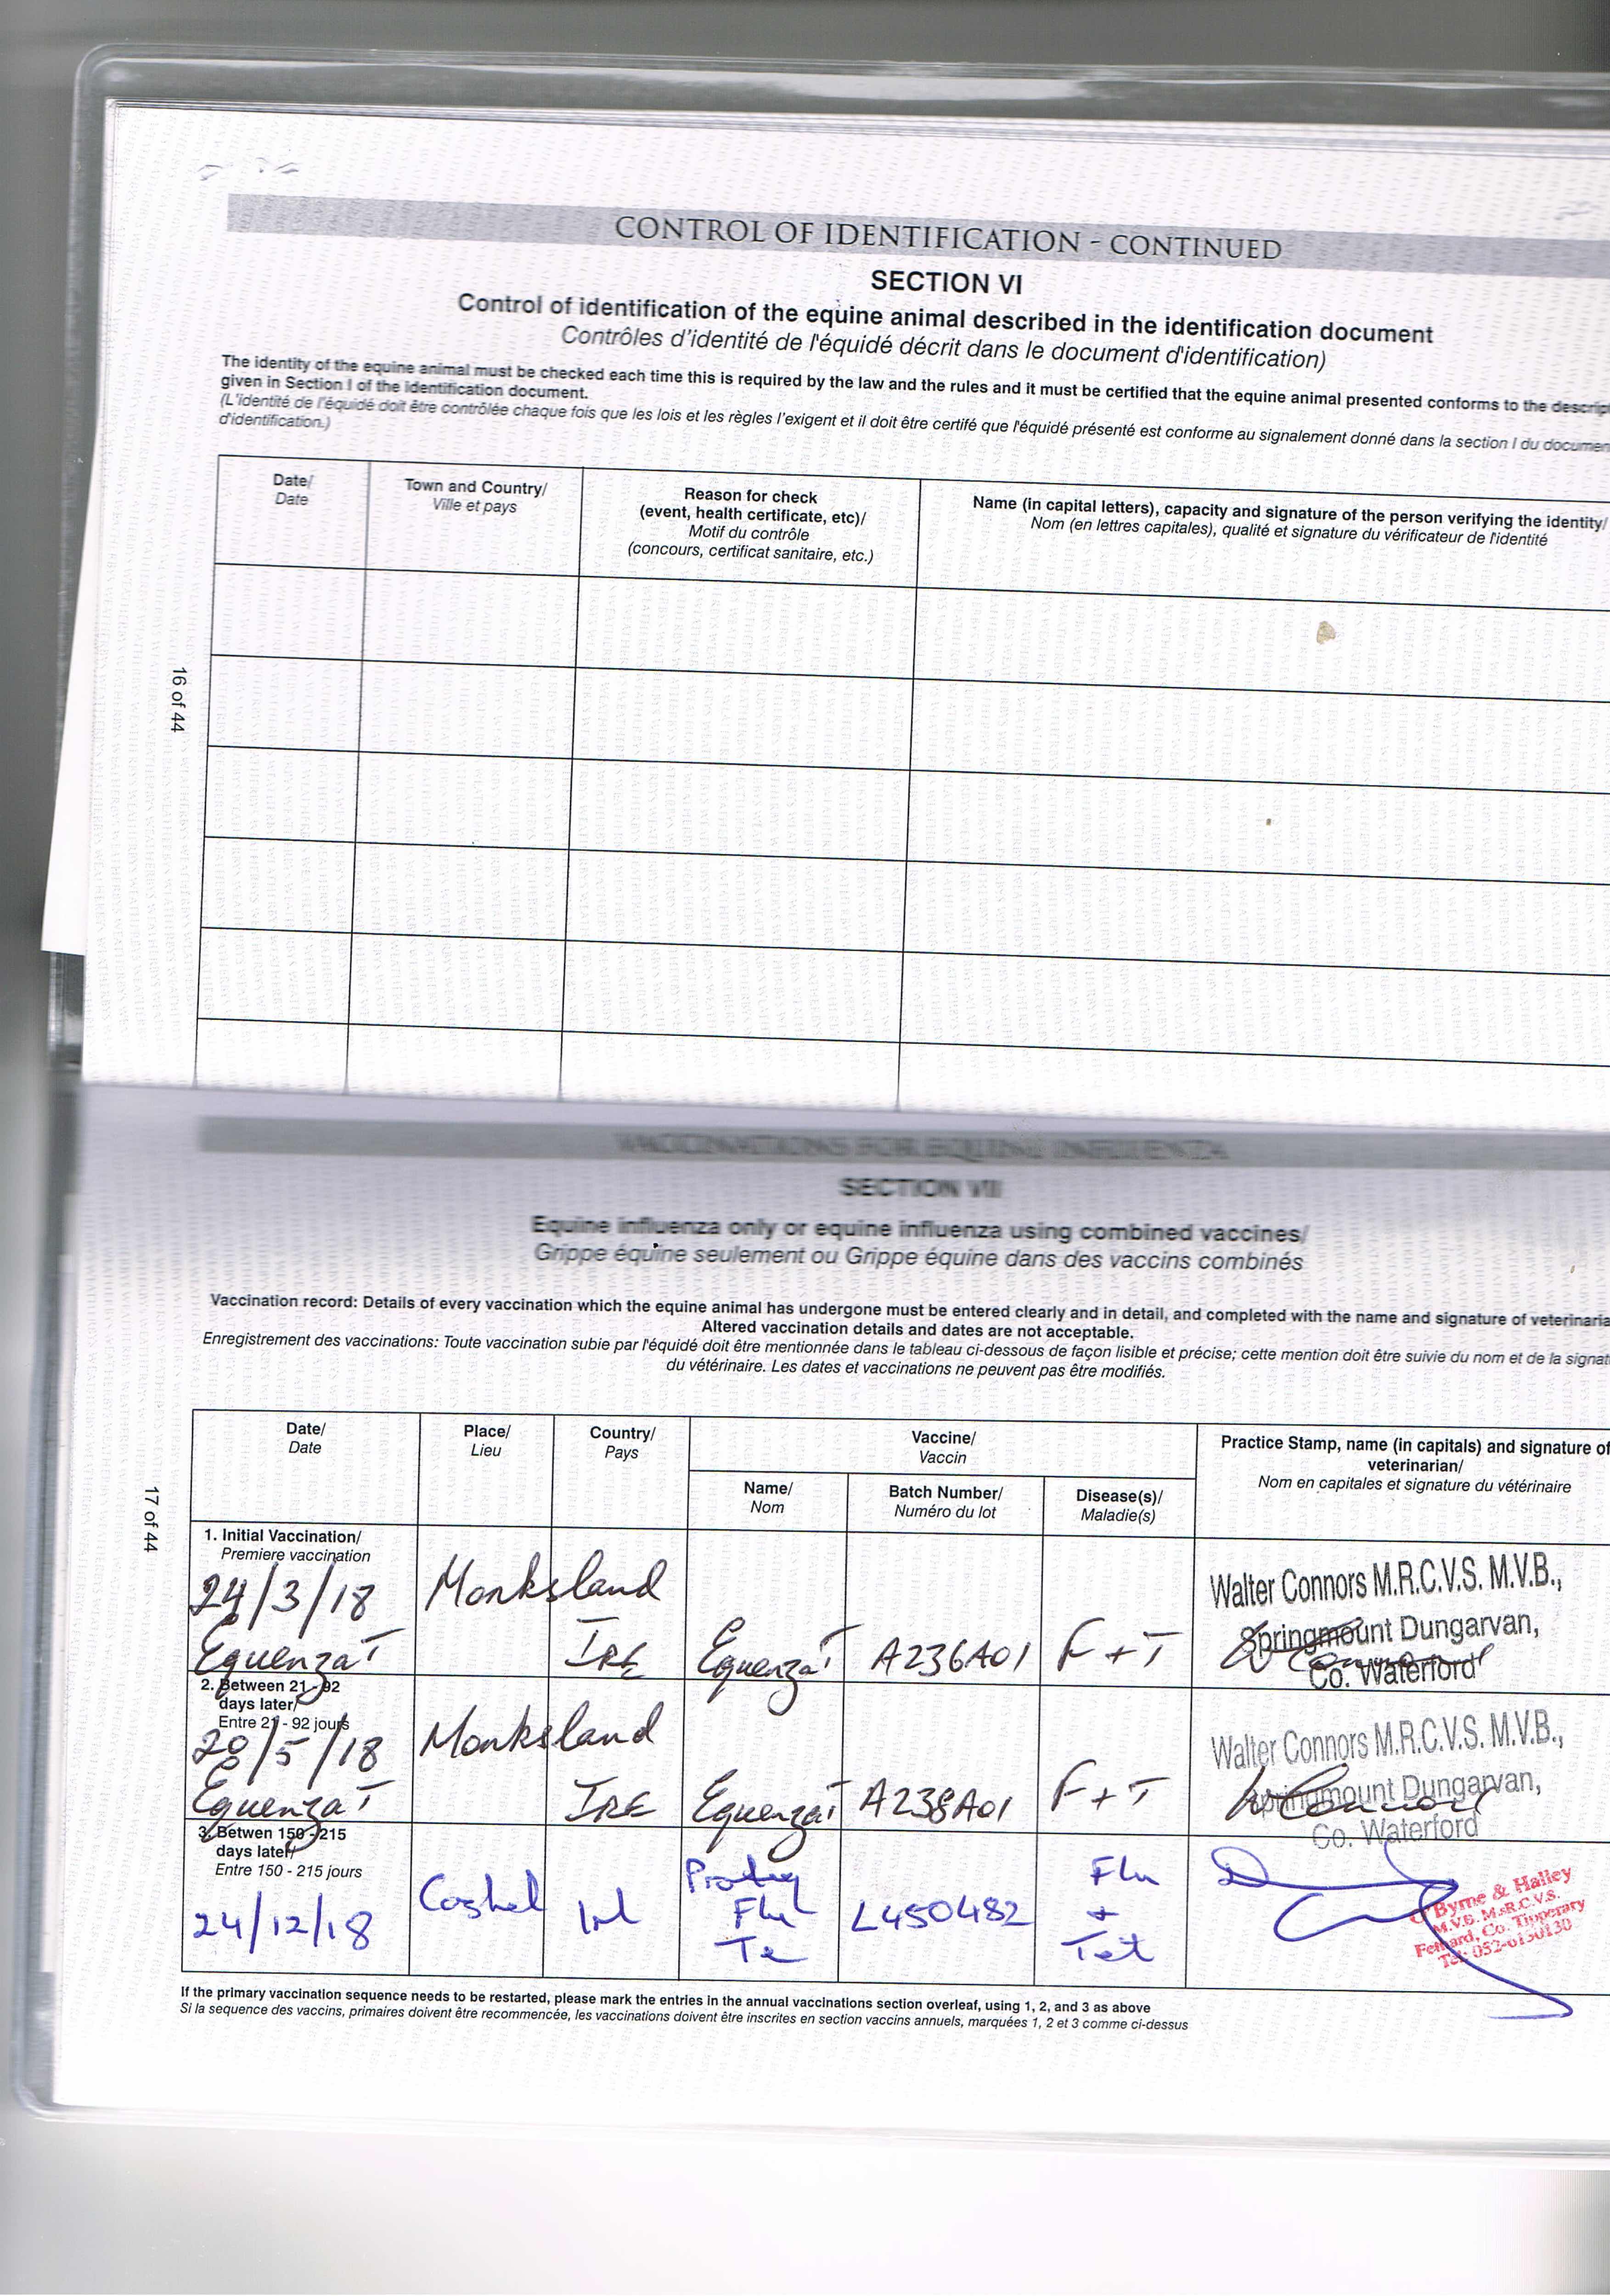 CONTROL OF IDENTIFICATION - CONTINUED
SECTION VI
Control of identification of the equine animal described in the identification document
Contrôles d'identité de l'équidé décrit dans le document d'identification)
The identity of the equine animal must be checked each time this is required by the law and the rules and it must be certified that the equine animal presented conforms to the descrip
given in Section I of the identification document.
(L'identité de l'équidé doit être contrôlée chaque fois que les lois et les règles l'exigent et il doit être certifé que l'équidé présenté est conforme au signalement donné dans la section I du documen
d'identification.)
Date/
Date
Town and Country/
Ville et pays
Reason for check
(event, health certificate, etc)/
Motif du contrôle
(concours, certificat sanitaire, etc.)
Name (in capital letters), capacity and signature of the person verifying the identity/
Nom (en lettres capitales), qualité et signature du vérificateur de l'identité
16 of 44
VACCINATIONS FOR EQUINE INFLUENZA
SECTION VII
Equine influenza only or equine influenza using combined vaccines/
Grippe équine seulement ou Grippe équine dans des vaccins combinés
Vaccination record: Details of every vaccination which the equine animal has undergone must be entered clearly and in detail, and completed with the name and signature of veterinaria
Altered vaccination details and dates are not acceptable.
Enregistrement des vaccinations: Toute vaccination subie par l'équidé doit être mentionnée dans le tableau ci-dessous de façon lisible et précise; cette mention doit être suivie du nom et de la signat
du vétérinaire. Les dates et vaccinations ne peuvent pas être modifiés.
Date/
Date
Place/
Lieu
Country/
Pays
Vaccine/
Vaccin
Name/
Nom
Batch Number/
Numéro du lot
Disease(s)/
Maladie(s)
Practice Stamp, name (in capitals) and signature of
veterinarian/
Nom en capitales et signature du vétérinaire
17 of 44
1. Initial Vaccination/
Premiere vaccination
24/3/18
Equenza T
Monksland
IRE
Equenza T
A236A01
F + T
Walter Connors M.R.C.V.S. M.V.B.,
Springmount Dungarvan,
Co. Waterford
W Connors
2. Between 21 - 92
days later/
Entre 21 - 92 jours
20/5/18
Equenza T
Monksland
IRE
Equenza T
A238A01
F + T
Walter Connors M.R.C.V.S. M.V.B.,
Springmount Dungarvan,
Co. Waterford
W Connors
3. Betwen 150 - 215
days later/
Entre 150 - 215 jours
24/12/18
Cashel
Irl
Proteq
Flu
Te
L450482
Flu
+
Tet
O'Byrne & Halley
M.V.B. M.R.C.V.S.
Fethard, Co. Tipperary
Tel: 052-6130130
If the primary vaccination sequence needs to be restarted, please mark the entries in the annual vaccinations section overleaf, using 1, 2, and 3 as above
Si la sequence des vaccins, primaires doivent être recommencée, les vaccinations doivent être inscrites en section vaccins annuels, marquées 1, 2 et 3 comme ci-dessus